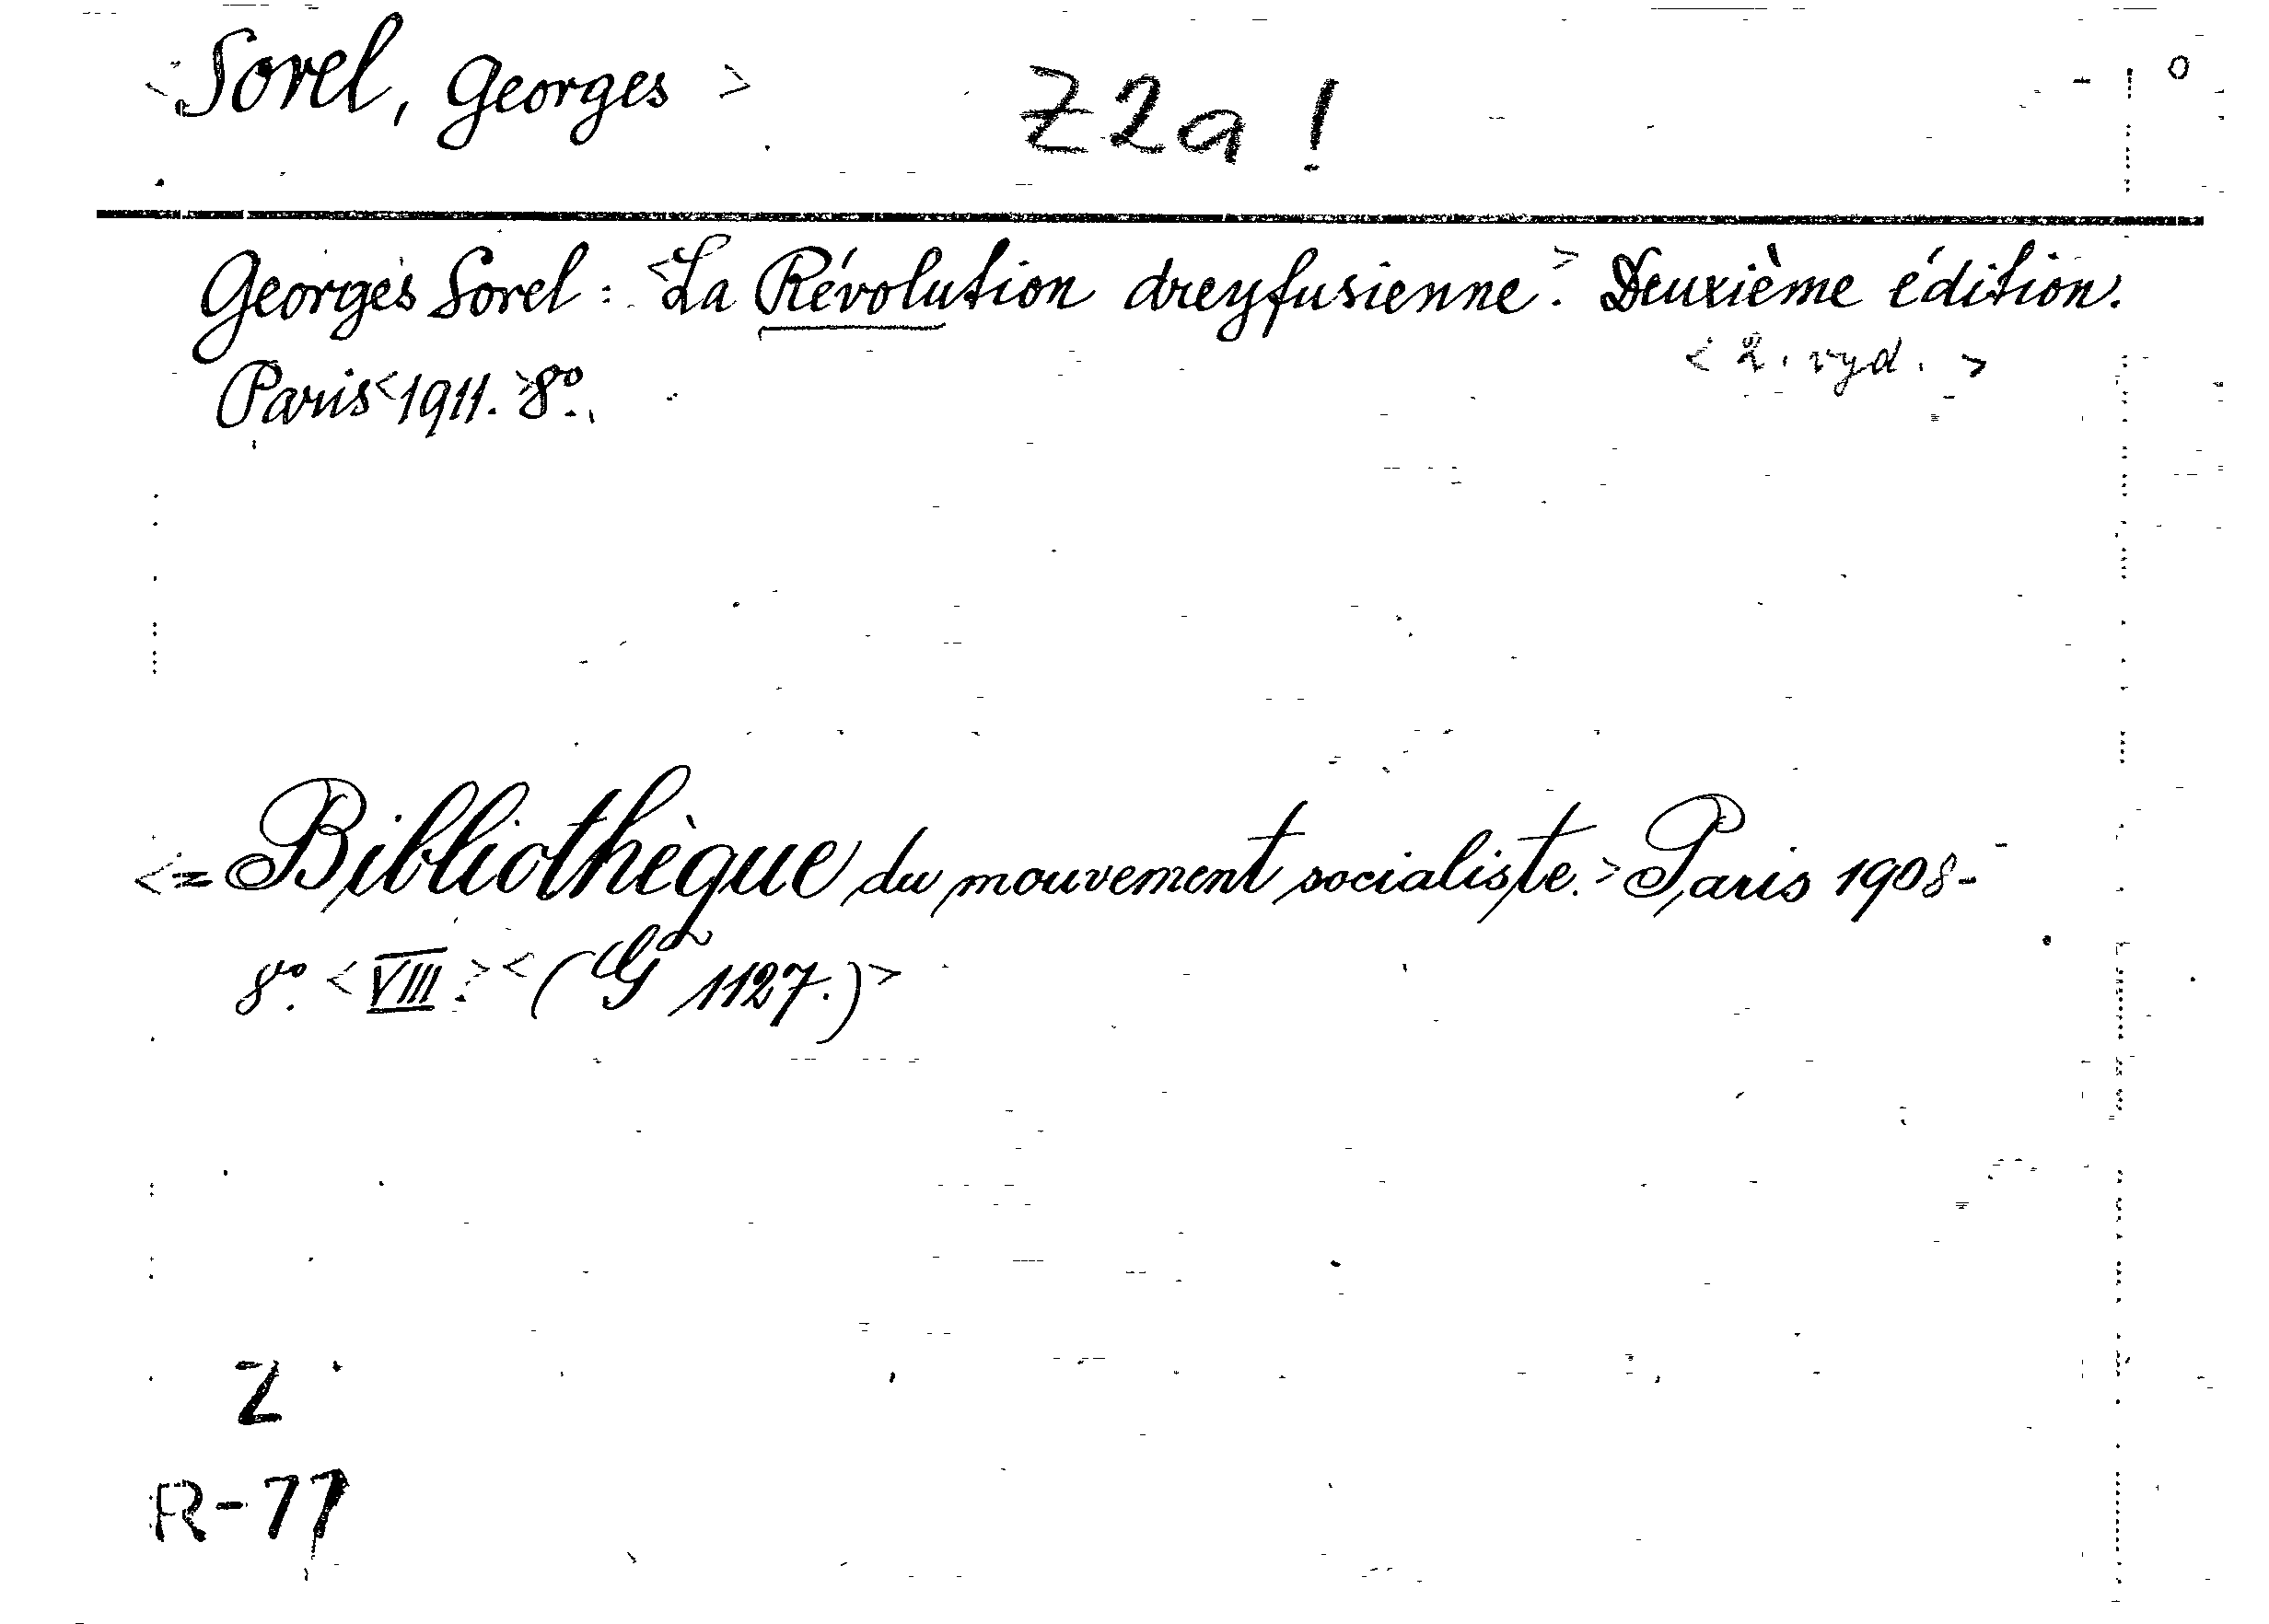 <Sorel, Georges> Z2a!
Georges Sorel: <La Révolution dreyfusienne>. Deuxième édition.
<2. vyd.>
Paris <1911.> 8º.
<= Bibliothèque du mouvement socialiste.> Paris 1908-
8º. <VIII.> <(G 1127.)>
Z
R-77